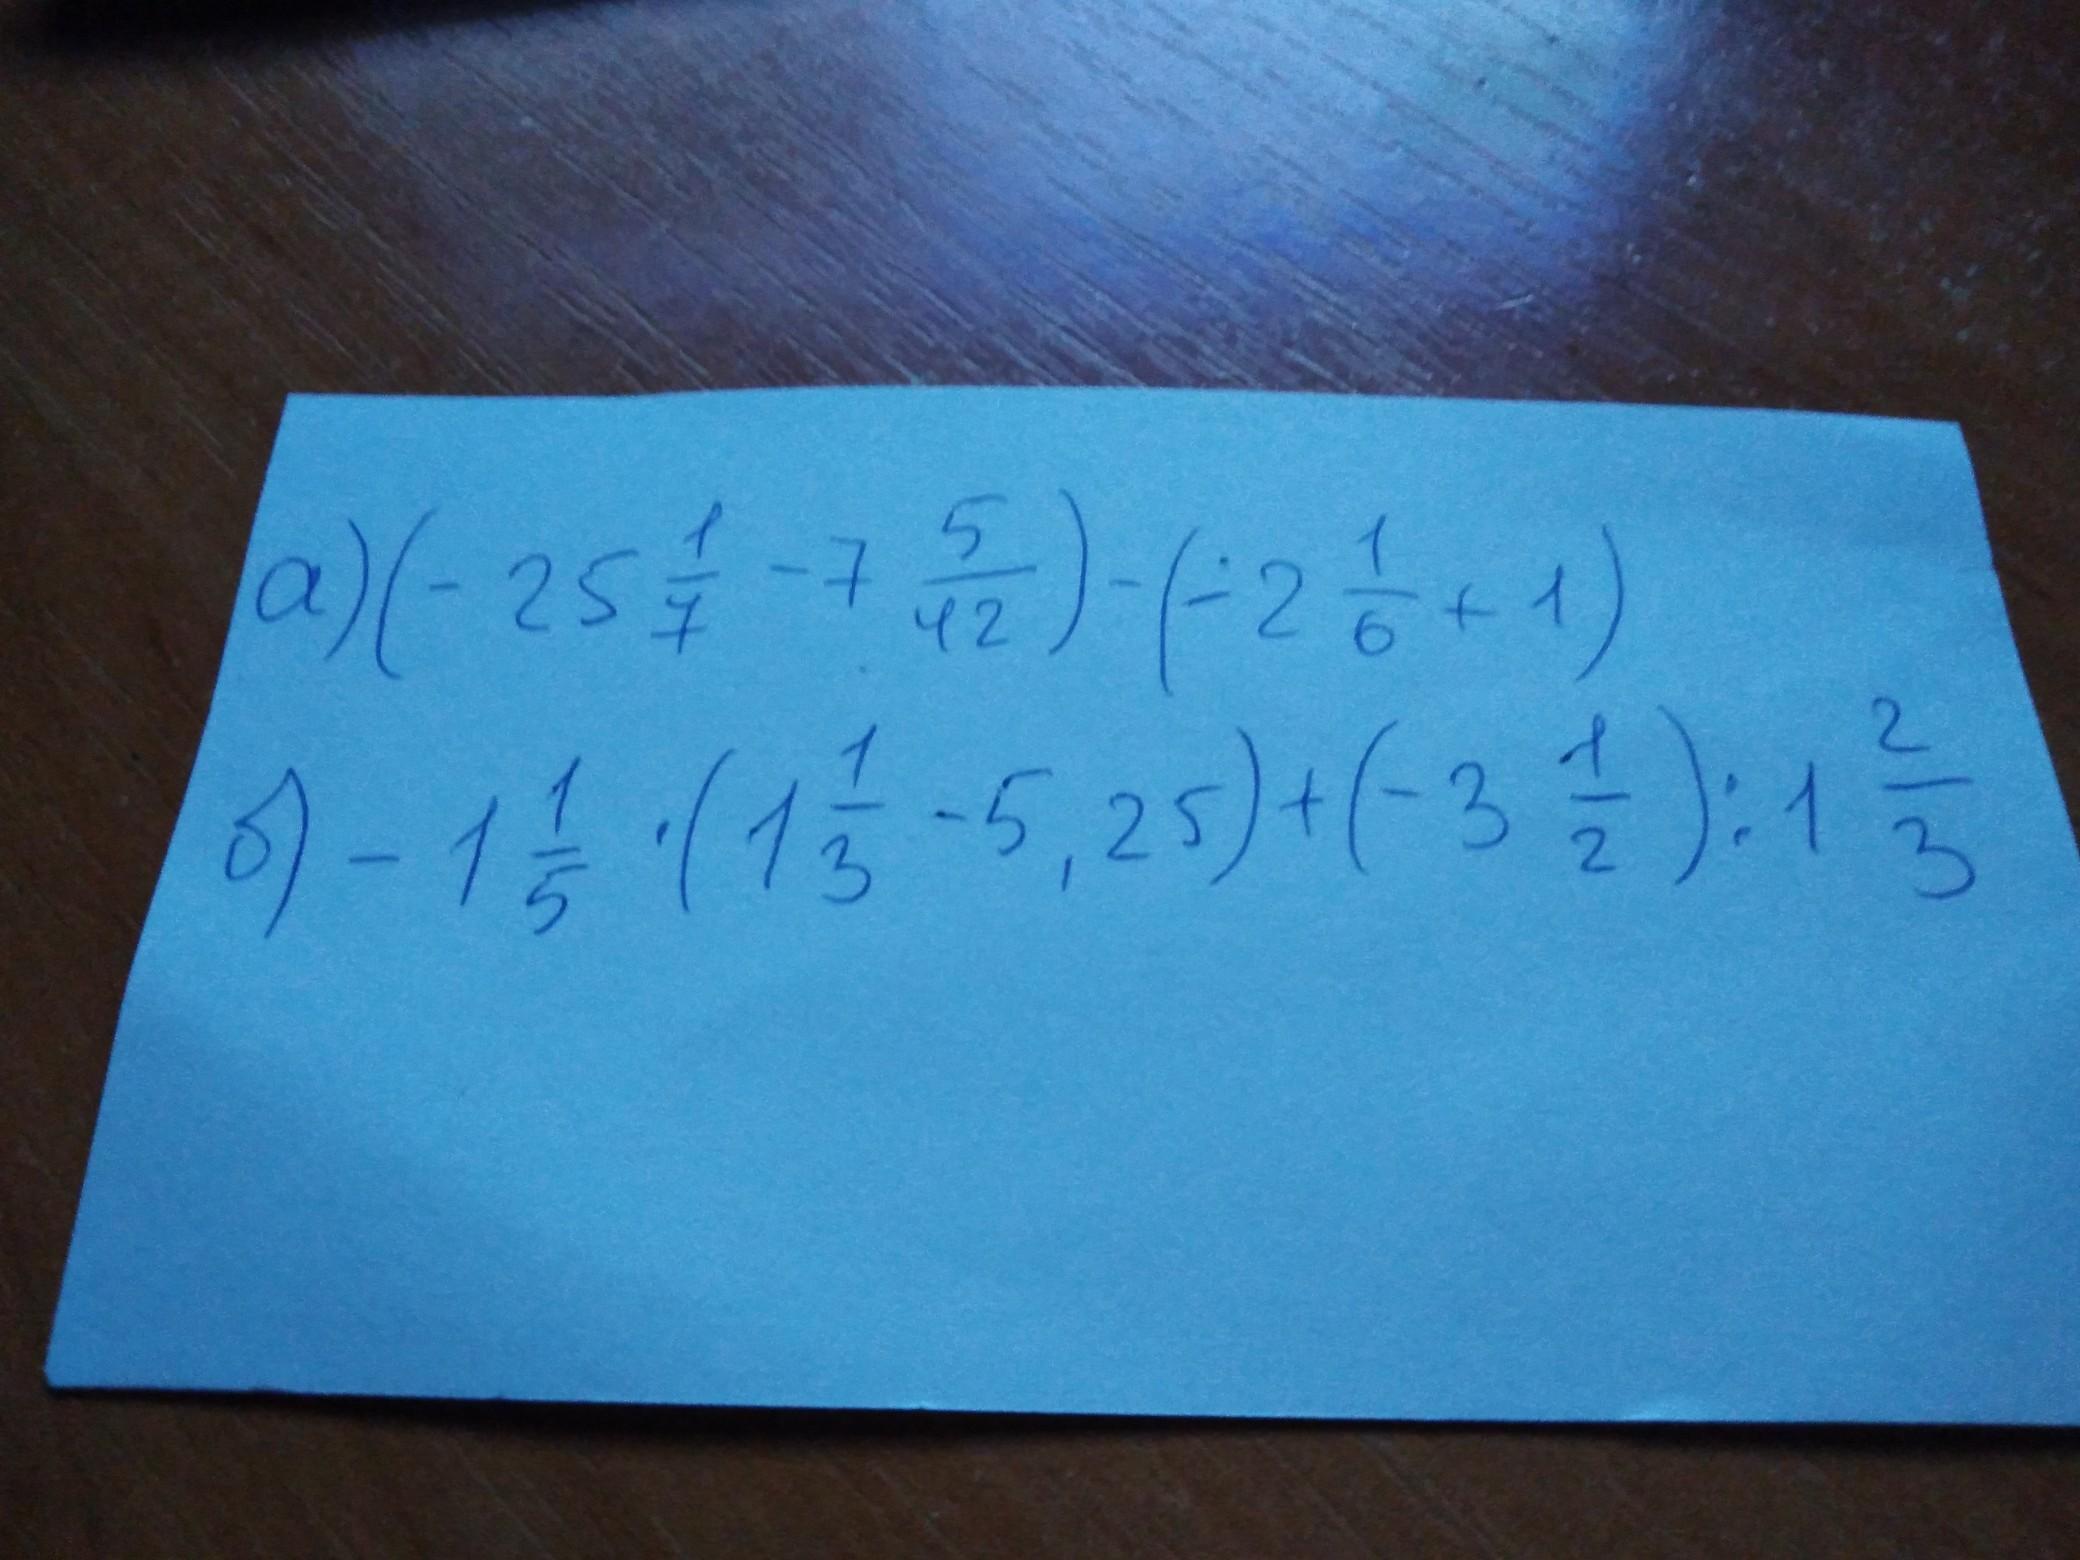 а) (- 25 1/7 - 7 5/42) - (- 2 1/6 + 1)
б) - 1 1/5 · (1 1/3 - 5,25) + (- 3 1/2) : 1 2/3